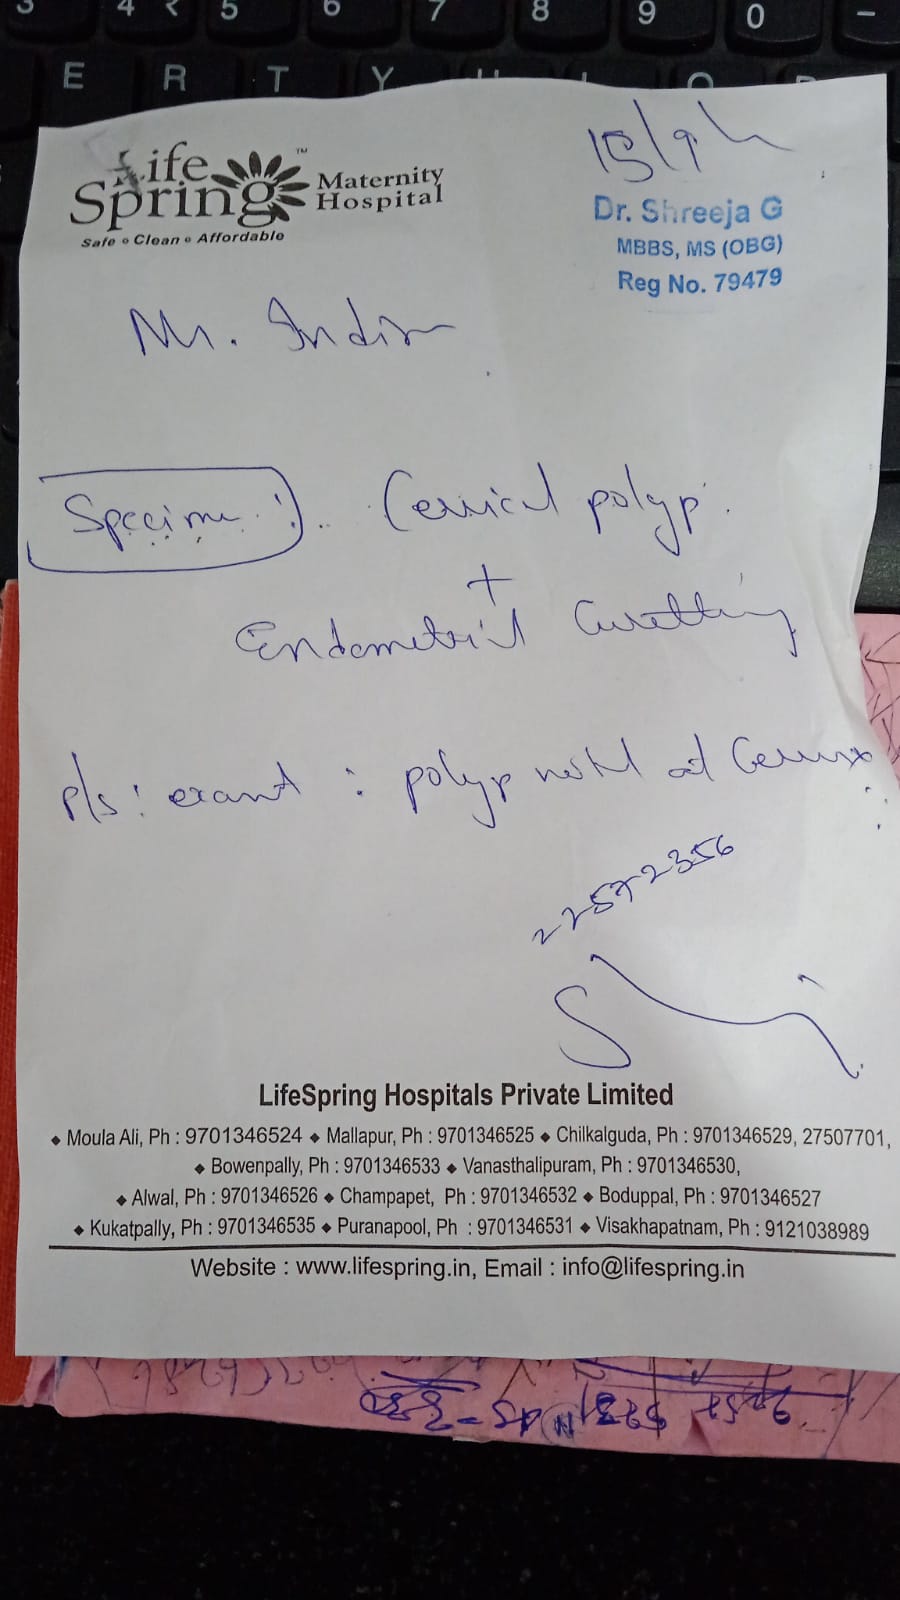 3 4 ₹ 5 6 7 8 9 0 –
E R T Y
Life Spring™ Maternity Hospital
Safe Clean Affordable
Dr. Shreeja G
MBBS, MS (OBG)
Reg No. 79479
Specimen :
Cervical polyp.
+
Endometrial Curetting
P/s : exam :
polyp noted at Cervix
22572356
LifeSpring Hospitals Private Limited
◆ Moula Ali, Ph : 9701346524 ◆ Mallapur, Ph : 9701346525 ◆ Chilkalguda, Ph : 9701346529, 27507701,
◆ Bowenpally, Ph : 9701346533 ◆ Vanasthalipuram, Ph : 9701346530,
◆ Alwal, Ph : 9701346526 ◆ Champapet, Ph : 9701346532 ◆ Boduppal, Ph : 9701346527
◆ Kukatpally, Ph : 9701346535 ◆ Puranapool, Ph : 9701346531 ◆ Visakhapatnam, Ph : 9121038989
Website : www.lifespring.in, Email : info@lifespring.in